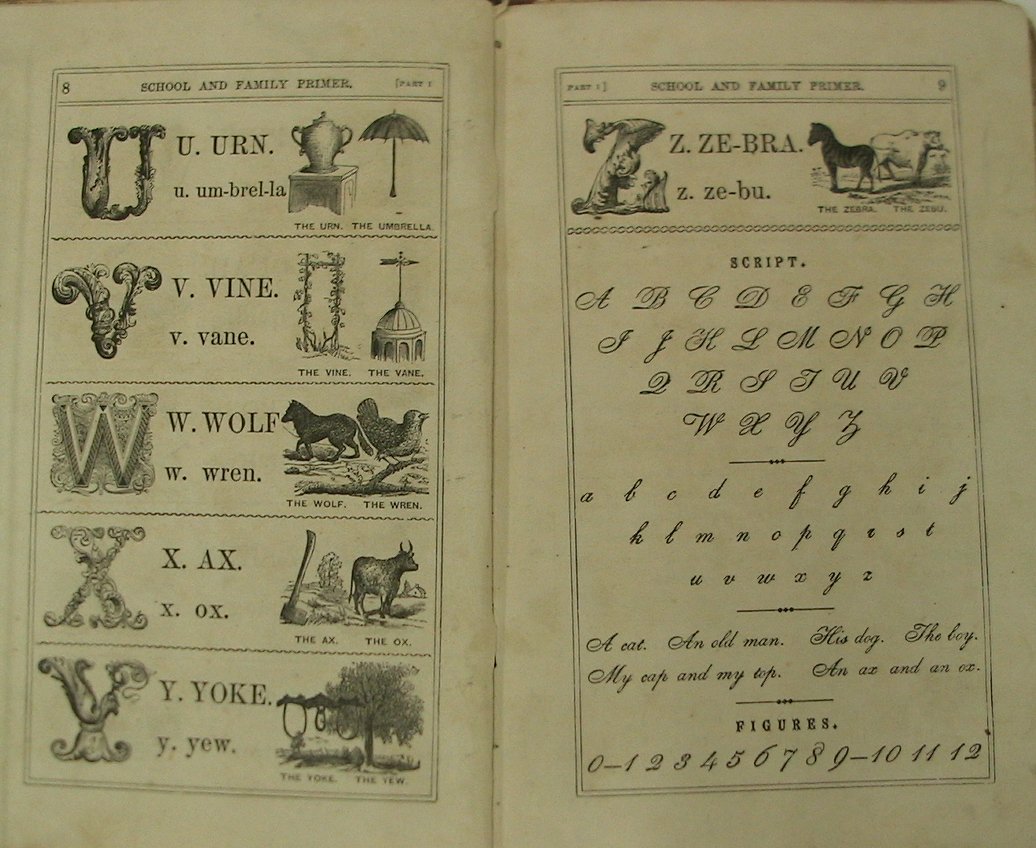 8 SCHOOL AND FAMILY PRIMER. [PART I
U U. URN.
u. um-brel-la
THE URN. THE UMBRELLA.
V V. VINE.
v. vane.
THE VINE. THE VANE.
W W. WOLF
w. wren.
THE WOLF. THE WREN.
X X. AX.
x. ox.
THE AX. THE OX.
Y Y. YOKE.
y. yew.
THE YOKE. THE YEW.
PART I] SCHOOL AND FAMILY PRIMER. 9
Z Z. ZE-BRA.
z. ze-bu.
THE ZEBRA. THE ZEBU.
SCRIPT.
A B C D E F G H
I J K L M N O P
Q R S T U V
W X Y Z
a b c d e f g h i j
k l m n o p q r s t
u v w x y z
A cat. An old man. His dog. The boy.
My cap and my top. An ax and an ox.
FIGURES.
0–1 2 3 4 5 6 7 8 9–10 11 12